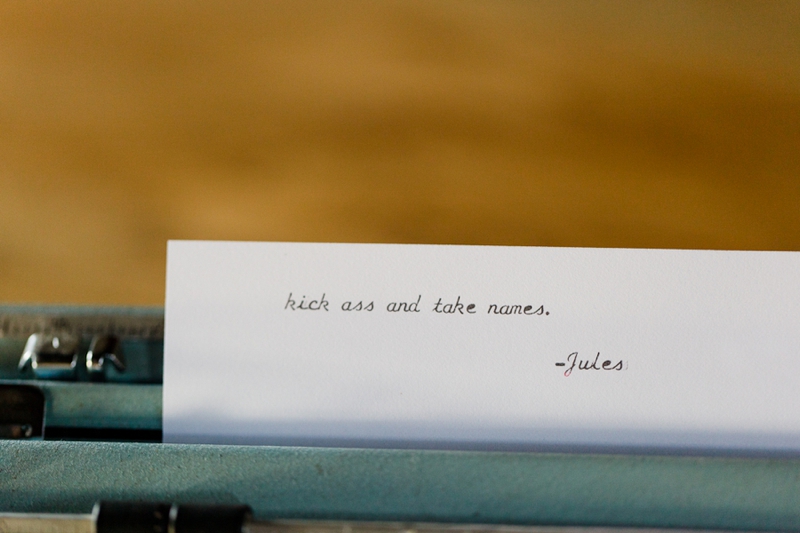 kick ass and take names.
-Jules